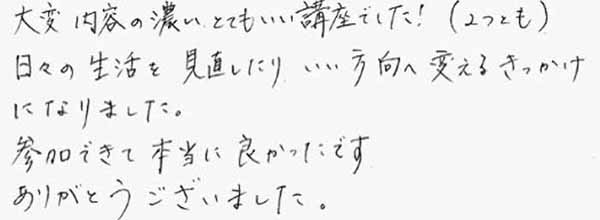 大変 内容の濃い、とてもいい講座でした!(2つとも)
日々の生活を見直したり、いい方向へ変えるきっかけ
になりました。
参加できて本当に良かったです
ありがとうございました。